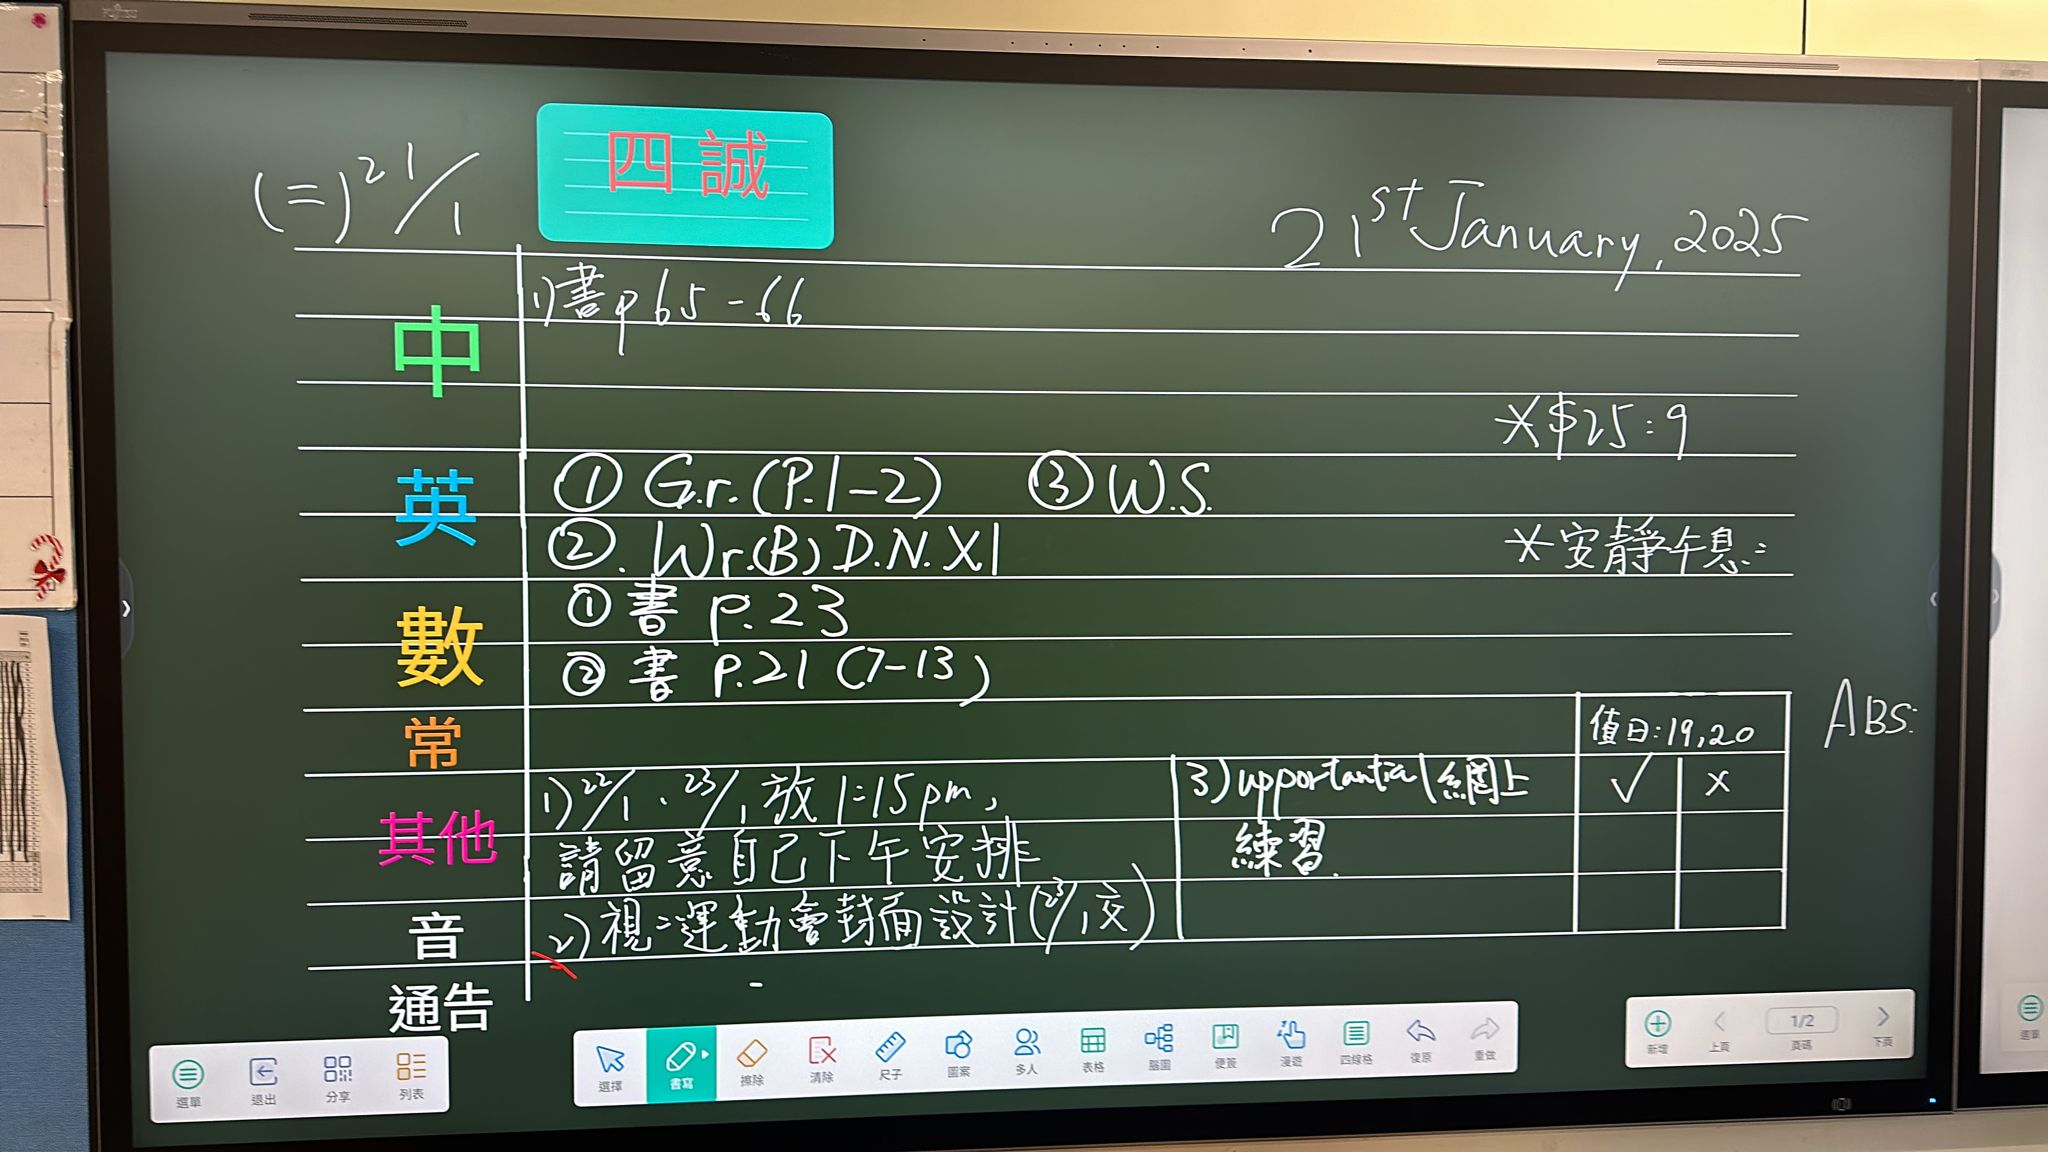 FUJITSU
四 誠
(二) 21/1
21st January, 2025
中
1) 書 p 65 - 66
* $25 : 9
英
① G.r. (P.1-2) ③ W.S.
②. Wr.(B) D.N.X1
* 安靜午息:
數
① 書 p.23
② 書 p.21 (7-13)
常
值日: 19, 20
ABS:
✓ x
其他
1) 22/1、23/1 放 1:15pm,
請留意自己下午安排
2) 視: 運動會封面設計 (23/1交)
3) 網上
練習.
音
通告
選單 退出 分享 列表
選擇 書寫 擦除 清除 尺子 圖案 多人 表格 腦圖 便簽 漫遊 四線格 復原 重做
新增 上頁 1/2 頁碼 下頁
選單